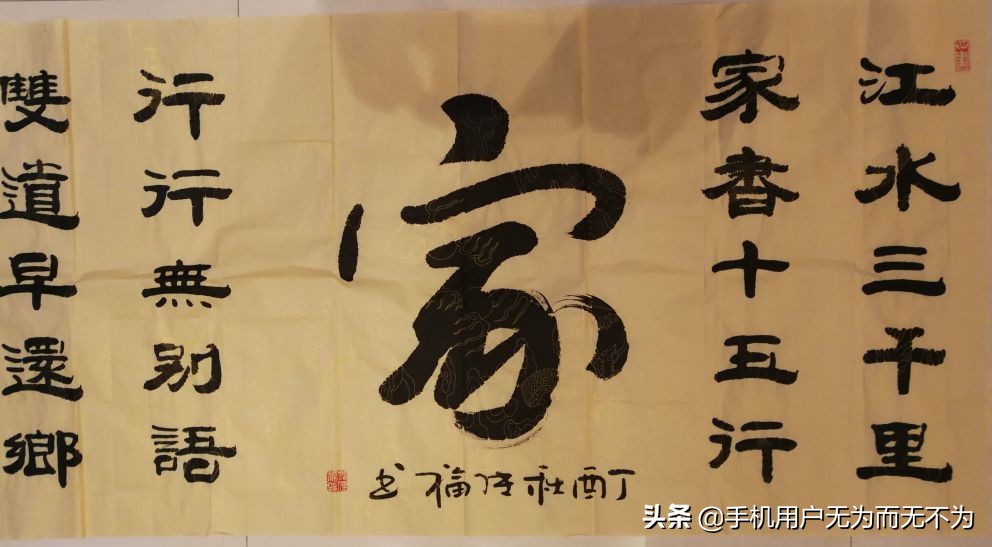 江水三千里
家書十五行
家
丁酉秋福书
行行無别語
雙道早還鄉
头条 @手机用户无为而无不为